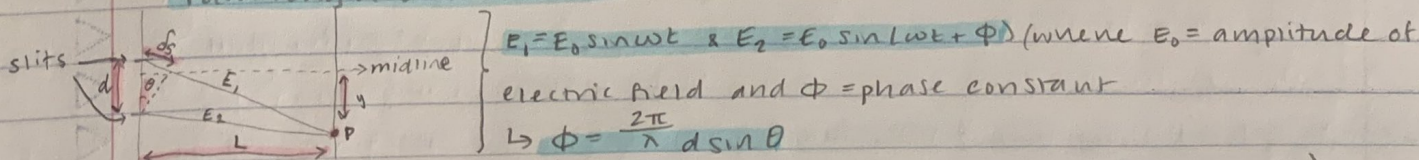 slits
d
θ
E₁
E₂
L
→midline
y
P
E₁=E₀ sinωt & E₂ =E₀ sin(ωt + Φ) (where E₀= amplitude of
electric field and Φ =phase constant
↳ Φ= 2π/λ d sin θ